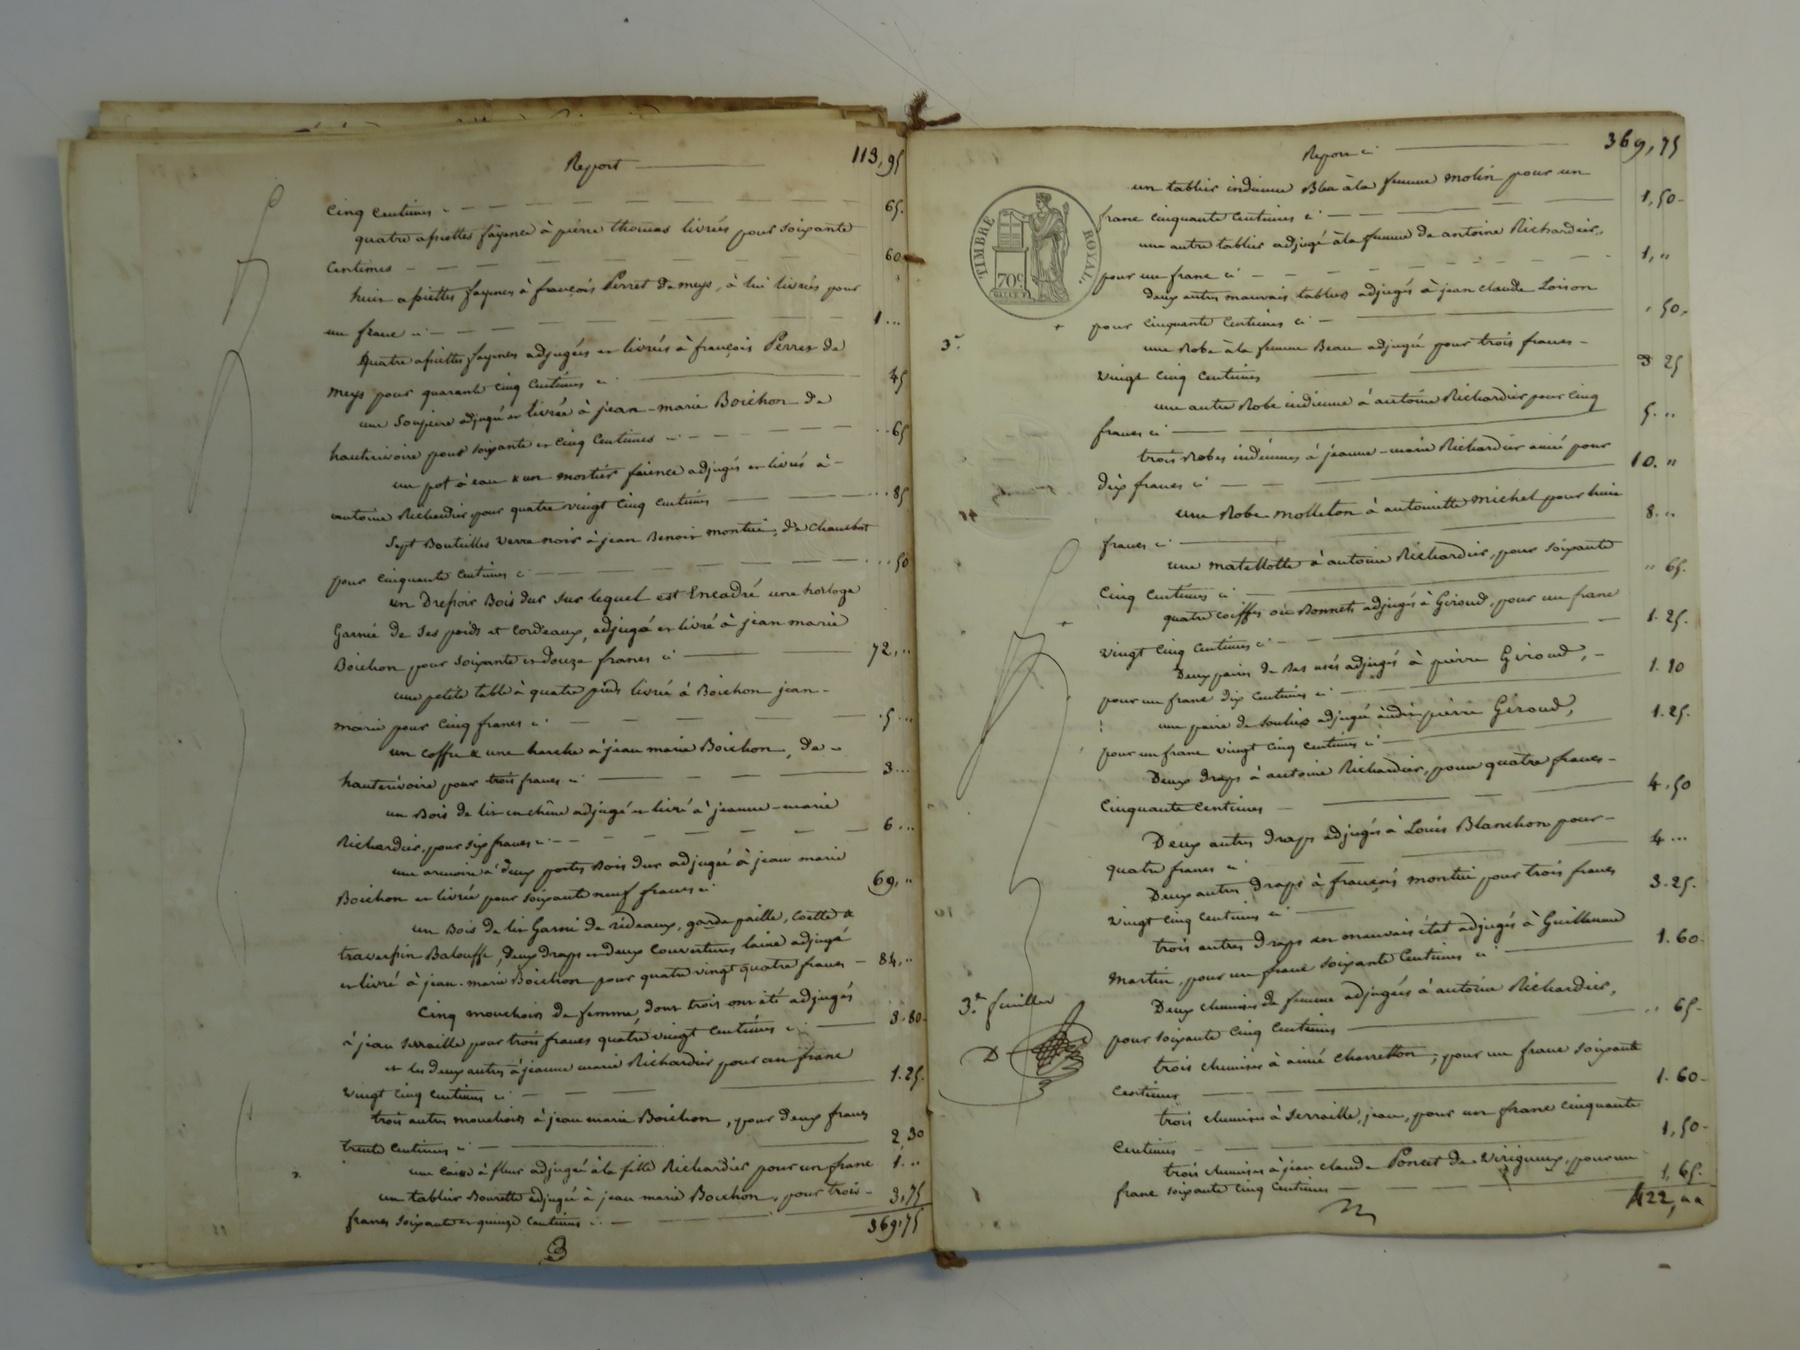 Report 113,95
Cinq Centimes ci 65.
quatre assiettes fayence à pierre thomas livrées pour soixante
Centimes 60
huit assiettes fayence à françois Perret de meys, à lui livrées pour
un franc ci 1...
quatre assiettes fayence adjugées et livrées à françois Perret de
meys pour quarante cinq Centimes ci 45
une Soupière adjugée et livrée à jean-marie Boichon de
hauterivoire pour soixante et Cinq Centimes ci 65
un pot à eau & un mortier faience adjugés et livrés à
antoine Richardier pour quatre vingt Cinq Centimes 85
Sept Bouteilles verre noir à jean Benoit montui, de
pour cinquante Centimes ci 50
un Dressoir Bois dur sur lequel est Encadré une horloge
Garnie de ses poids et Cordeaux, adjugé et livré à jean marie
Boichon pour soixante et douze francs ci 72,..
une petite table à quatre pieds livrée à Boichon jean-
marie pour cinq francs ci .5...
un coffre & une harche à jean marie Boichon, de
hauterivoire pour trois francs ci 3...
un Bois de lit en chêne adjugé et livré à jeanne-marie
Richardier, pour six francs ci 6...
une armoire à deux portes Bois dur adjugée à jean marie
Boichon et livrée pour soixante neuf francs ci 69,..
un Bois de lit Garni de rideaux, garde paille, Coette &
traversin Balouffe, deux draps et deux Couvertures laine adjugé
et livré à jean-marie Boichon pour quatre vingt quatre francs 84,..
Cinq mouchoirs de femme, dont trois ont été adjugés
à jean Serraille pour trois francs quatre vingt Centimes ci 3.80
et les deux autres à jeanne marie Richardier pour un franc
vingt cinq Centimes ci 1.25
trois autres mouchoirs à jean marie Boichon, pour deux francs
trente Centimes ci 2,30
une Caisse à fleur adjugée à la fille Richardier pour un franc 1...
un tablier Bourette adjugé à jean marie Boichon, pour trois 3,75
francs soixante et quinze Centimes ci 369,75
Report ci 369,75
un tablier indienne Bleu à la femme molin pour un
franc cinquante Centimes ci 1,50
une autre tablier adjugé à la femme de antoine Richardier,
pour un franc ci 1,..
deux autres mauvais tabliers adjugés à jean claude Loison
pour cinquante Centimes ci . 50.
TIMBRE ROYAL
70c
3e.
une Robe à la femme Beau adjugée pour trois francs
vingt Cinq Centimes 3 25
une autre Robe indienne à antoine Richardier pour cinq
francs ci 5. ..
trois Robes indiennes à jeanne-marie Richardier ainé pour
dix francs ci 10. ..
une Robe molleton à antoinette michel pour huit
francs ci 8. ..
une matellotte à antoine Richardier, pour soixante
Cinq Centimes ci .. 65.
quatre coiffes ou Bonnets adjugés à Giroud, pour un franc
vingt Cinq Centimes ci 1.25.
Deux paires de Bas usés adjugés à pierre Giroud,
pour un franc dix Centimes ci 1.10
une paire de souliers adjugée audit pierre Giroud,
pour un franc vingt Cinq Centimes ci 1.25.
Deux draps à antoine Richardier, pour quatre francs
Cinquante Centimes 4.50
Deux autres draps adjugés à Louis Blanchon pour
quatre francs ci 4...
Deux autres draps à françois montui pour trois francs
vingt Cinq Centimes ci 3.25.
trois autres draps en mauvais état adjugés à Guillaume
Martin, pour un franc soixante Centimes ci 1.60
3e. feuillet
Deux chemises de femme adjugées à antoine Richardier,
pour soixante Cinq Centimes .. 65
trois chemises à aimé charretton, pour un franc soixante
Centimes 1.60
trois chemises à Serraille, jean, pour un franc cinquante
Centimes 1,50
trois chemises à jean claude Poncet de Virigneux, pour un
franc soixante Cinq Centimes 1,65.
422,..